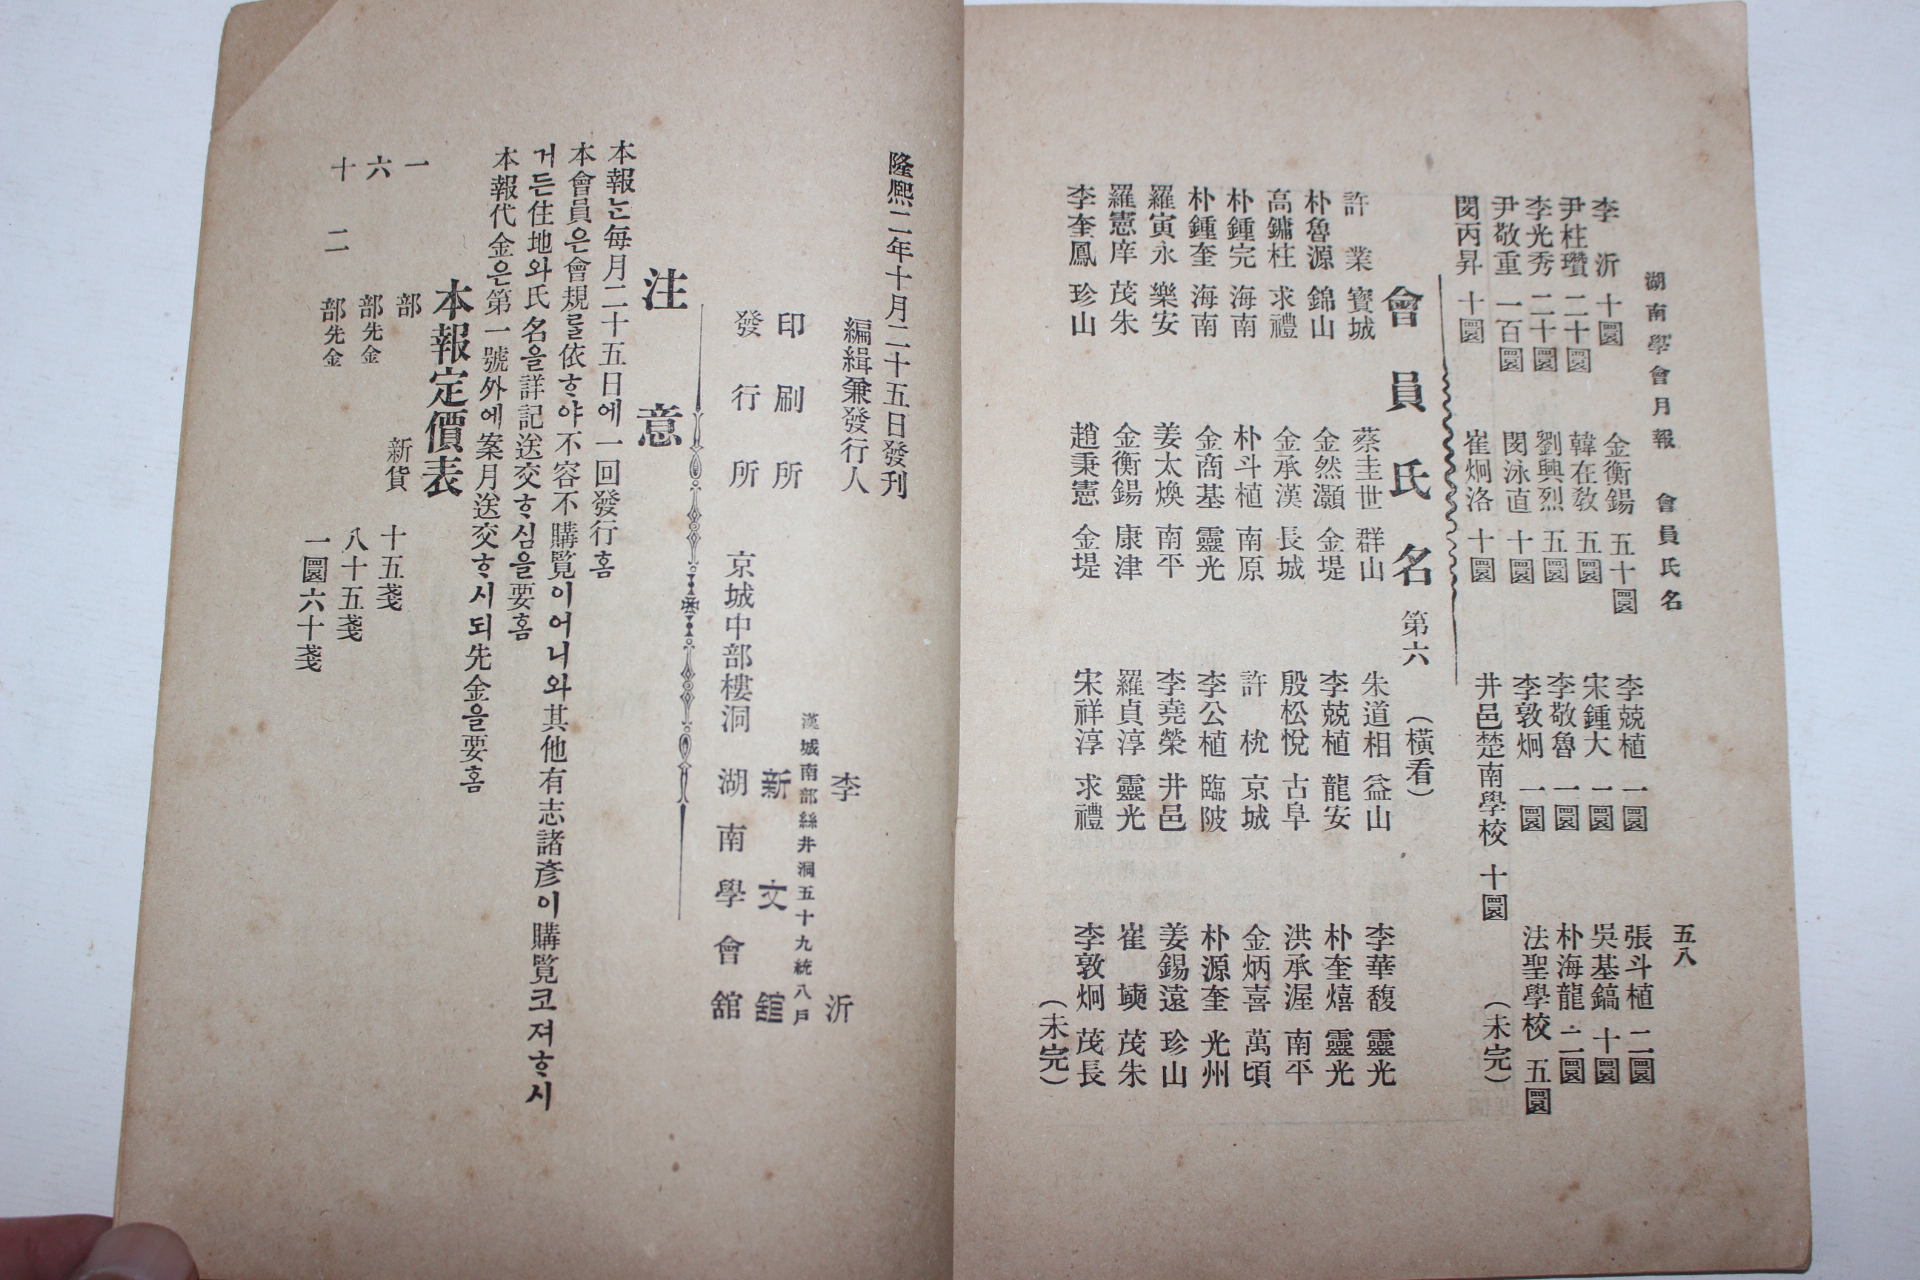 湖南學會月報 會員氏名 五八
李沂 十圜 金衡錫 五十圜 李兢植 一圜 張斗植 二圜
尹柱瓚 二十圜 韓在敎 五圜 宋鍾大 一圜 吳基鎬 十圜
李光秀 二十圜 劉興烈 五圜 李敬魯 一圜 朴海龍 二圜
尹敬重 一百圜 閔泳直 十圜 李敦炯 一圜 法聖學校 五圜
閔丙昇 十圜 崔炯洛 十圜 井邑楚南學校 十圜 (未完)
會員氏名 第六 (橫看)
許業 寶城 蔡圭世 群山 朱道相 益山 李華馥 靈光
朴魯源 錦山 金然灝 金堤 李兢植 龍安 朴奎熺 靈光
高鏞柱 求禮 金承漢 長城 殷松悅 古阜 洪承渥 南平
朴鍾完 海南 朴斗植 南原 許 京城 金炳喜 萬頃
朴鍾奎 海南 金商基 靈光 李公植 臨陂 朴源奎 光州
羅寅永 樂安 姜太煥 南平 李堯榮 井邑 姜錫遠 珍山
羅憲庠 茂朱 金衡錫 康津 羅貞淳 靈光 崔 茂朱
李奎鳳 珍山 趙秉憲 金堤 宋祥淳 求禮 李敦炯 茂長
(未完)
隆熙二年十月二十五日發刊
編緝兼發行人 李沂
漢城南部絲井洞五十九統八戶
印刷所 新文舘
發行所 京城中部樓洞 湖南學會舘
注意
本報는每月二十五日에一回發行홈
本會員은會規를依ᄒᆞ야不容不購覽이어니와其他有志諸彥이購覽코져ᄒᆞ시
거든住地와氏名을詳記送交ᄒᆞ심을要홈
本報代金은第一號外에案月送交ᄒᆞ시되先金을要홈
本報定價表
一部 新貨 十五戔
六部先金 八十五戔
十二部先金 一圜六十戔